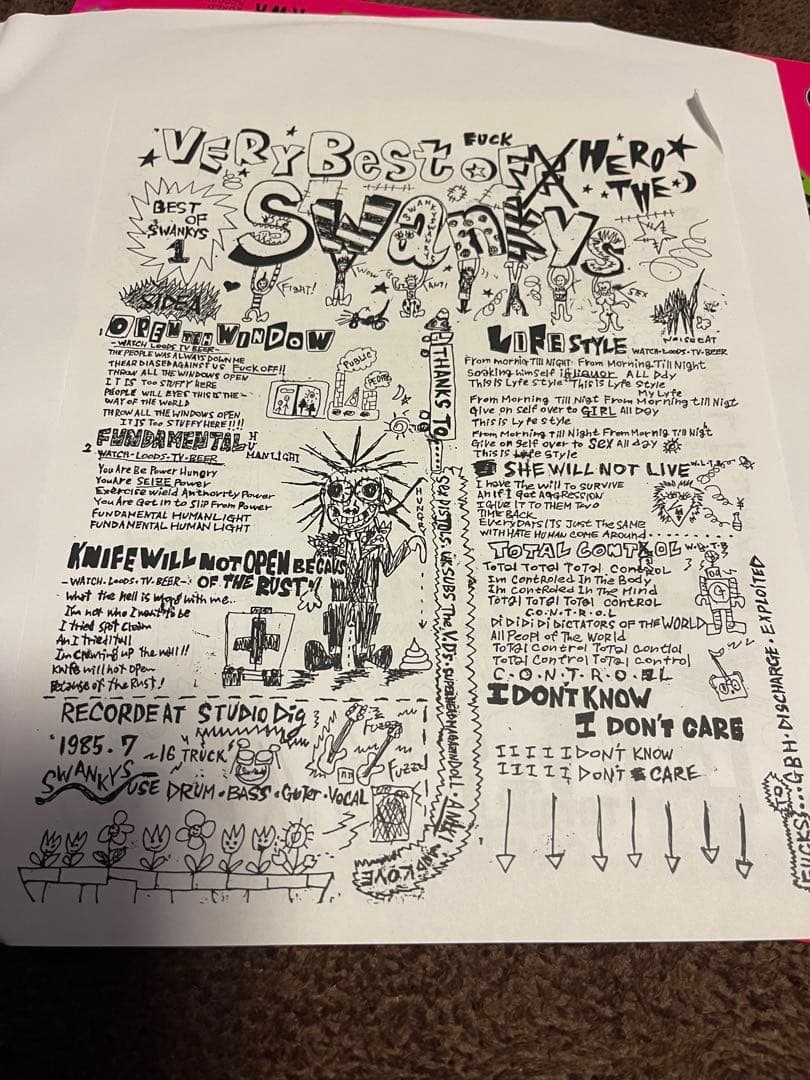 VERY BEST OF
FUCK
HERO
THE
SWANKYS
BEST
OF
SWANKYS
1
FIGHT!
WOW
ANTI
SEX
SIDE A
NOISE CAT
1 OPEN THE WINDOW
-WATCH-LOODS TV BEER-
THE PEOPLE WAS ALWAYS DOWN ME
FUCK OFF!!
THROW ALL THE WINDOWS OPEN
IT IS TOO STUFFY HERE
PEOPLE WILL EYES THIS IS THE-
WAY OF THE WORLD
THROW ALL THE WINDOWS OPEN
IT IS TOO STUFFY HERE!!!!
PUBLIC
PEOPLE
2 FUNDAMENTAL HUMANLIGHT
WATCH-LOODS-TV-BEER
You Are Be Power Hungry
You ARE SEIZE Power
Exercise wield Anthority Power
You Are Got in to Slip From Power
FUNDAMENTAL HUMANLIGHT
FUNDAMENTAL HUMAN LIGHT
KNIFE WILL NOT OPEN BECAUS
OF THE RUST
-WATCH-LOODS-TV-BEER-
what the hell is wrong with me..
I'm not who I want to be
I tried Spot Claim
An I tried
up the wall!!
Knife will not open
Because of the Rust!
HUNGRY
RECORDE AT STUDIO Dig
'1985.7 ~16 TRUCK
SWANKYS USE DRUM·BASS·GUTER·VOCAL
Fuzz
Fuzz
THANKS TO....
SEX PISTOLS·UK SUBS·THE V.D'S
LIFE STYLE WATCH-LOODS-TV-BEER
From morning Till Night From Morning Till Night
Soaking himself in LIQUOR All Day
This Is Lyfe Style This Is Lyfe Style
My Lyfe
From Morning Till Nigt From Morning till Nigt
Give on Self over to GIRL All Day
This is Lyfe Style
From Morning Till Night From Mornig Till Night
Give on Self over to Sex All day
This is Lyfe Style
SHE WILL NOT LIVE W.L.T.B
I Have The Will To SURVIVE
An If I Got AGGRESSION
I GIVE IT TO THEM Two
TIME BACK
EVERYDAY ITS JUST THE SAME
WITH HATE HUMAN COME AROUND
TOTAL CONTROL W.L.T.B
Total Total Total Control
Im Controled In The Body
Im Controled In The Mind
Total Total Total control
C.O.N.T.R.O.L
DI DI DI DI DICTATORS OF THE WORLD
All Peopl of The World
Total Control Total Contlol
Total Control Total control
C.O.N.T.R.O.L
I DON'T KNOW
I DON'T CARE
I I I I I DON'T KNOW
I I I I I DON'T CARE
FUCKS TO...GBH·DISCHARGE·EXPLOITED